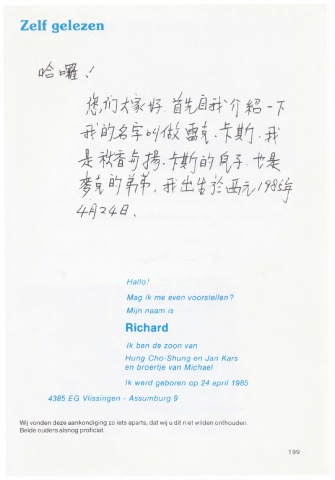 Zelf gelezen
哈囉！
您们大家好.首先自我介紹一下
我的名字叫做雷克.卡斯.我
是秋香与揚.卡斯的兒子.也是
麥克的弟弟.我出生於西元1985年
4月24日.
Hallo!
Mag ik me even voorstellen?
Mijn naam is
Richard
Ik ben de zoon van
Hung Cho-Shung en Jan Kars
en broertje van Michael
Ik werd geboren op 24 april 1985
4385 EG Vlissingen - Assumburg 9
Wij vonden deze aankondiging zo iets aparts, dat wij u dit niet wilden onthouden.
Beide ouders alsnog proficiat.
199